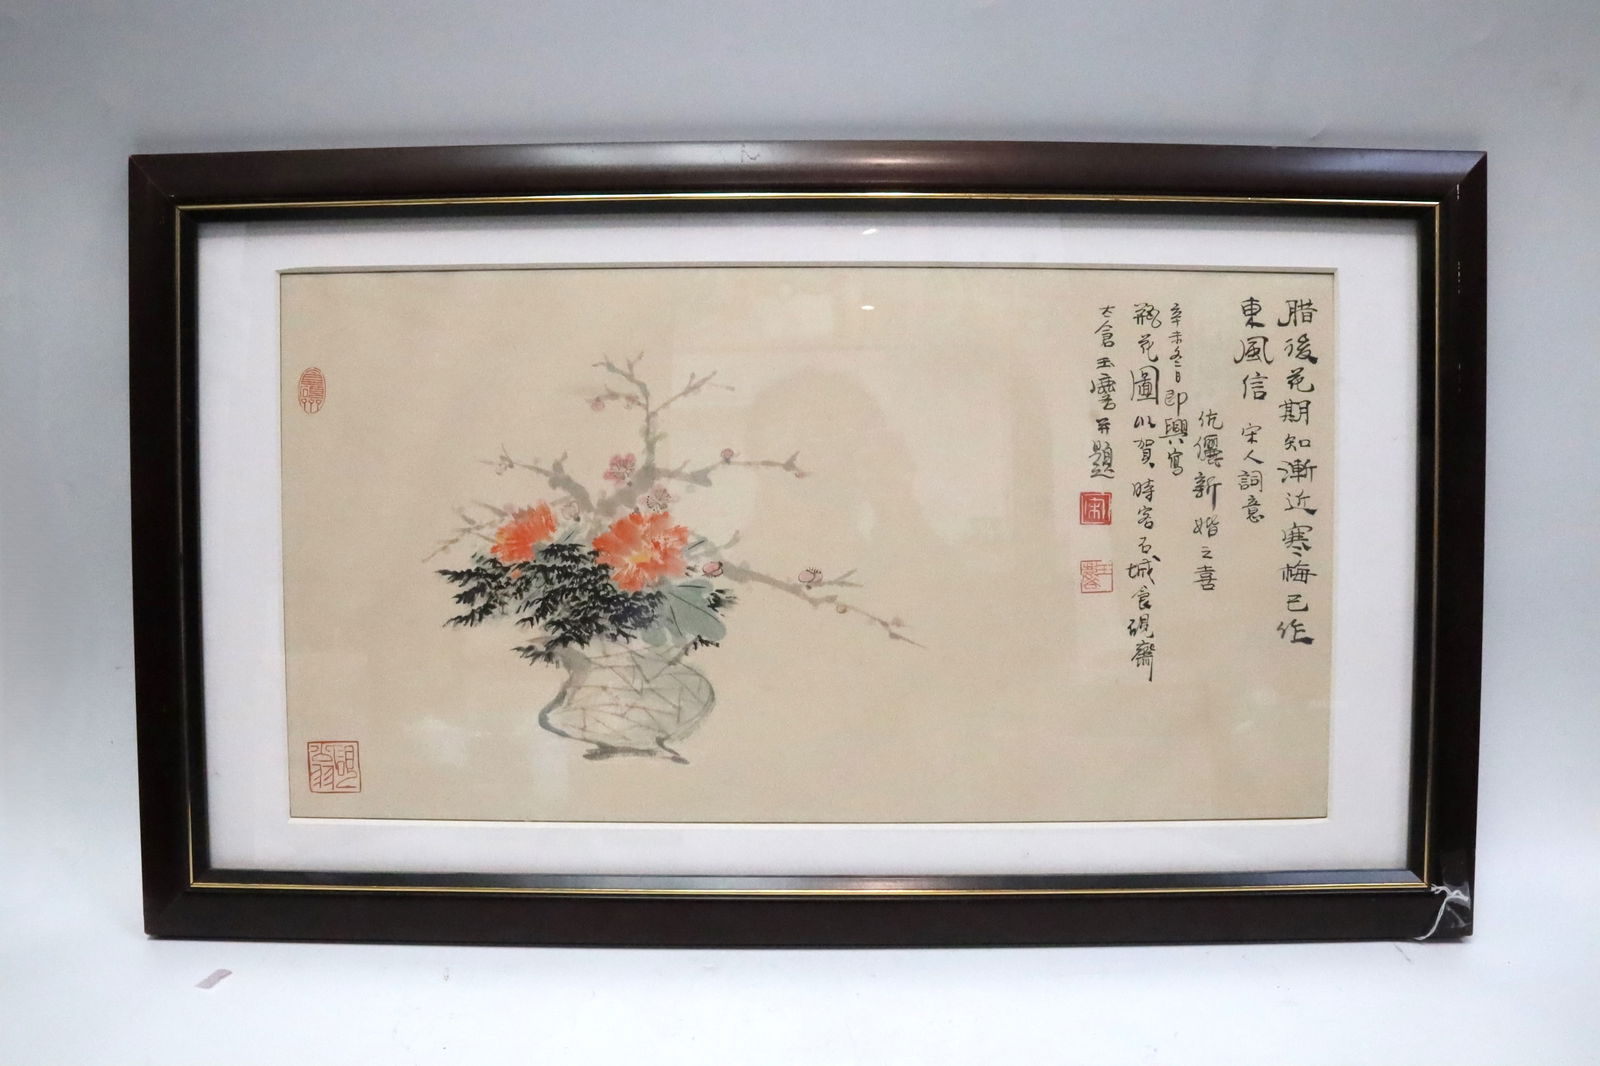 腊後花期知漸近寒梅已作
東風信 宋人詞意
伉儷新婚之喜
辛未冬日即興寫
瓶花圖以賀時客石城食硯齋
太倉玉麐并題
宋